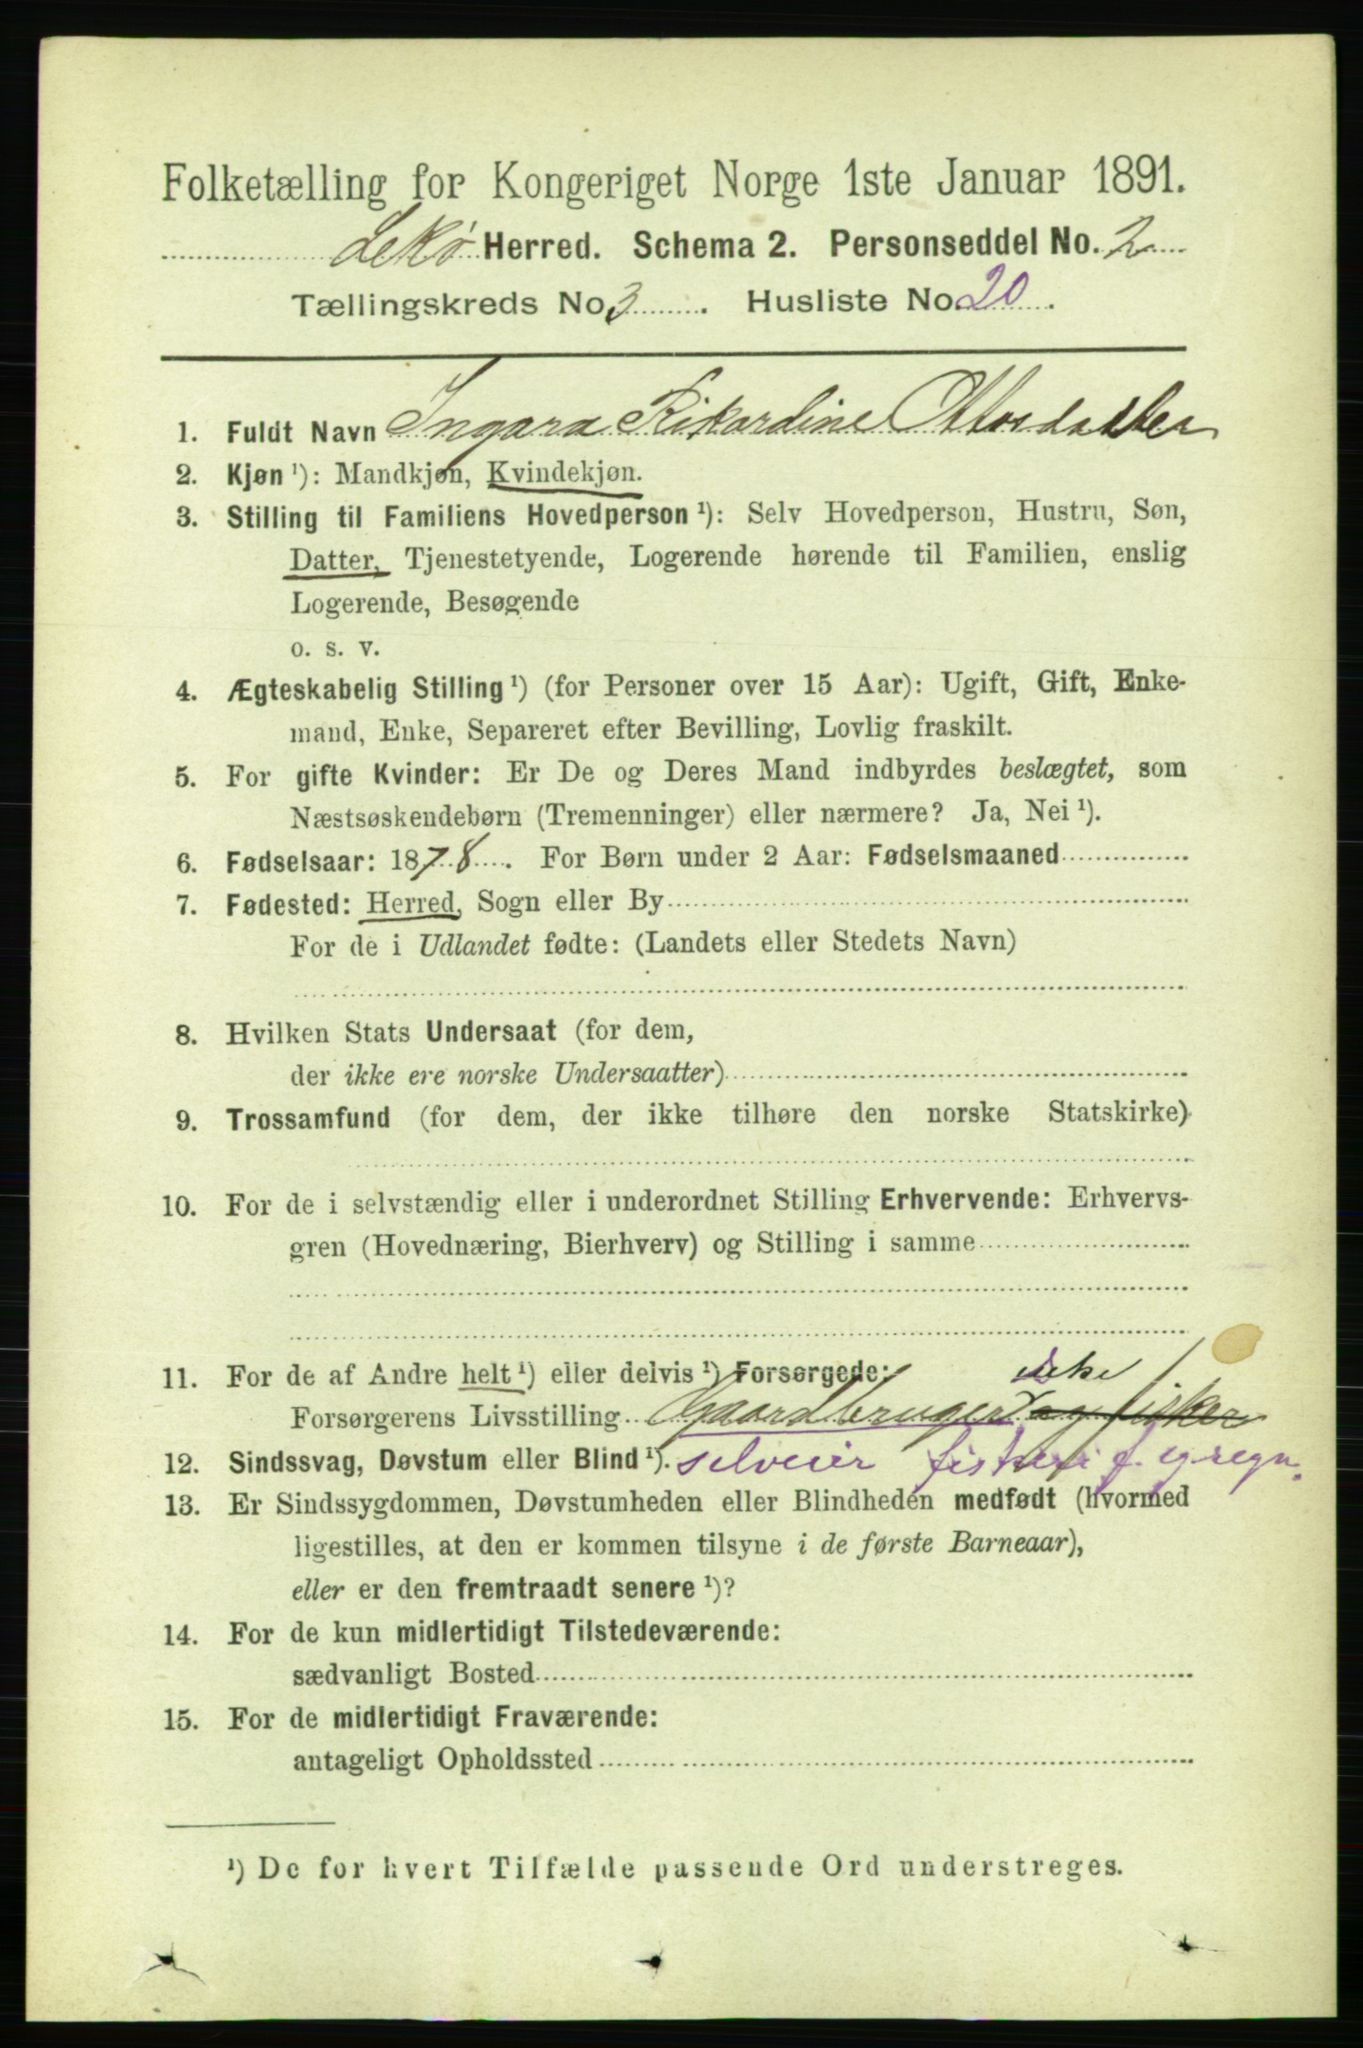 Folketælling for Kongeriget Norge 1ste Januar 1891.
Lekø Herred. Schema 2. Personseddel No. 2
Tællingskreds No. 3. Husliste No. 20.
1. Fuldt Navn Ingara Rikardine Ottosdatter
2. Kjøn ¹): Mandkjøn, Kvindekjøn.
3. Stilling til Familiens Hovedperson ¹): Selv Hovedperson, Hustru, Søn,
Datter, Tjenestetyende, Logerende hørende til Familien, enslig
Logerende, Besøgende
o. s. v.
4. Ægteskabelig Stilling ¹) (for Personer over 15 Aar): Ugift, Gift, Enke-
mand, Enke, Separeret efter Bevilling, Lovlig fraskilt.
5. For gifte Kvinder: Er De og Deres Mand indbyrdes beslægtet, som
Næstsøskendebørn (Tremenninger) eller nærmere? Ja, Nei ¹).
6. Fødselsaar: 1878. For Børn under 2 Aar: Fødselsmaaned
7. Fødested: Herred, Sogn eller By
For de i Udlandet fødte: (Landets eller Stedets Navn)
8. Hvilken Stats Undersaat (for dem,
der ikke ere norske Undersaatter)
9. Trossamfund (for dem, der ikke tilhøre den norske Statskirke)
10. For de i selvstændig eller i underordnet Stilling Erhvervende: Erhvervs-
gren (Hovednæring, Bierhverv) og Stilling i samme
11. For de af Andre helt ¹) eller delvis ¹) Forsørgede:
Forsørgerens Livsstilling Gaardbruger og fisker
12. Sindssvag, Døvstum eller Blind ¹). selveier fiskeri f. eg. regn.
13. Er Sindssygdommen, Døvstumheden eller Blindheden medfødt (hvormed
ligestilles, at den er kommen tilsyne i de første Barneaar),
eller er den fremtraadt senere ¹)?
14. For de kun midlertidigt Tilstedeværende:
sædvanligt Bosted
15. For de midlertidigt Fraværende:
antageligt Opholdssted
¹) De for hvert Tilfælde passende Ord understreges.